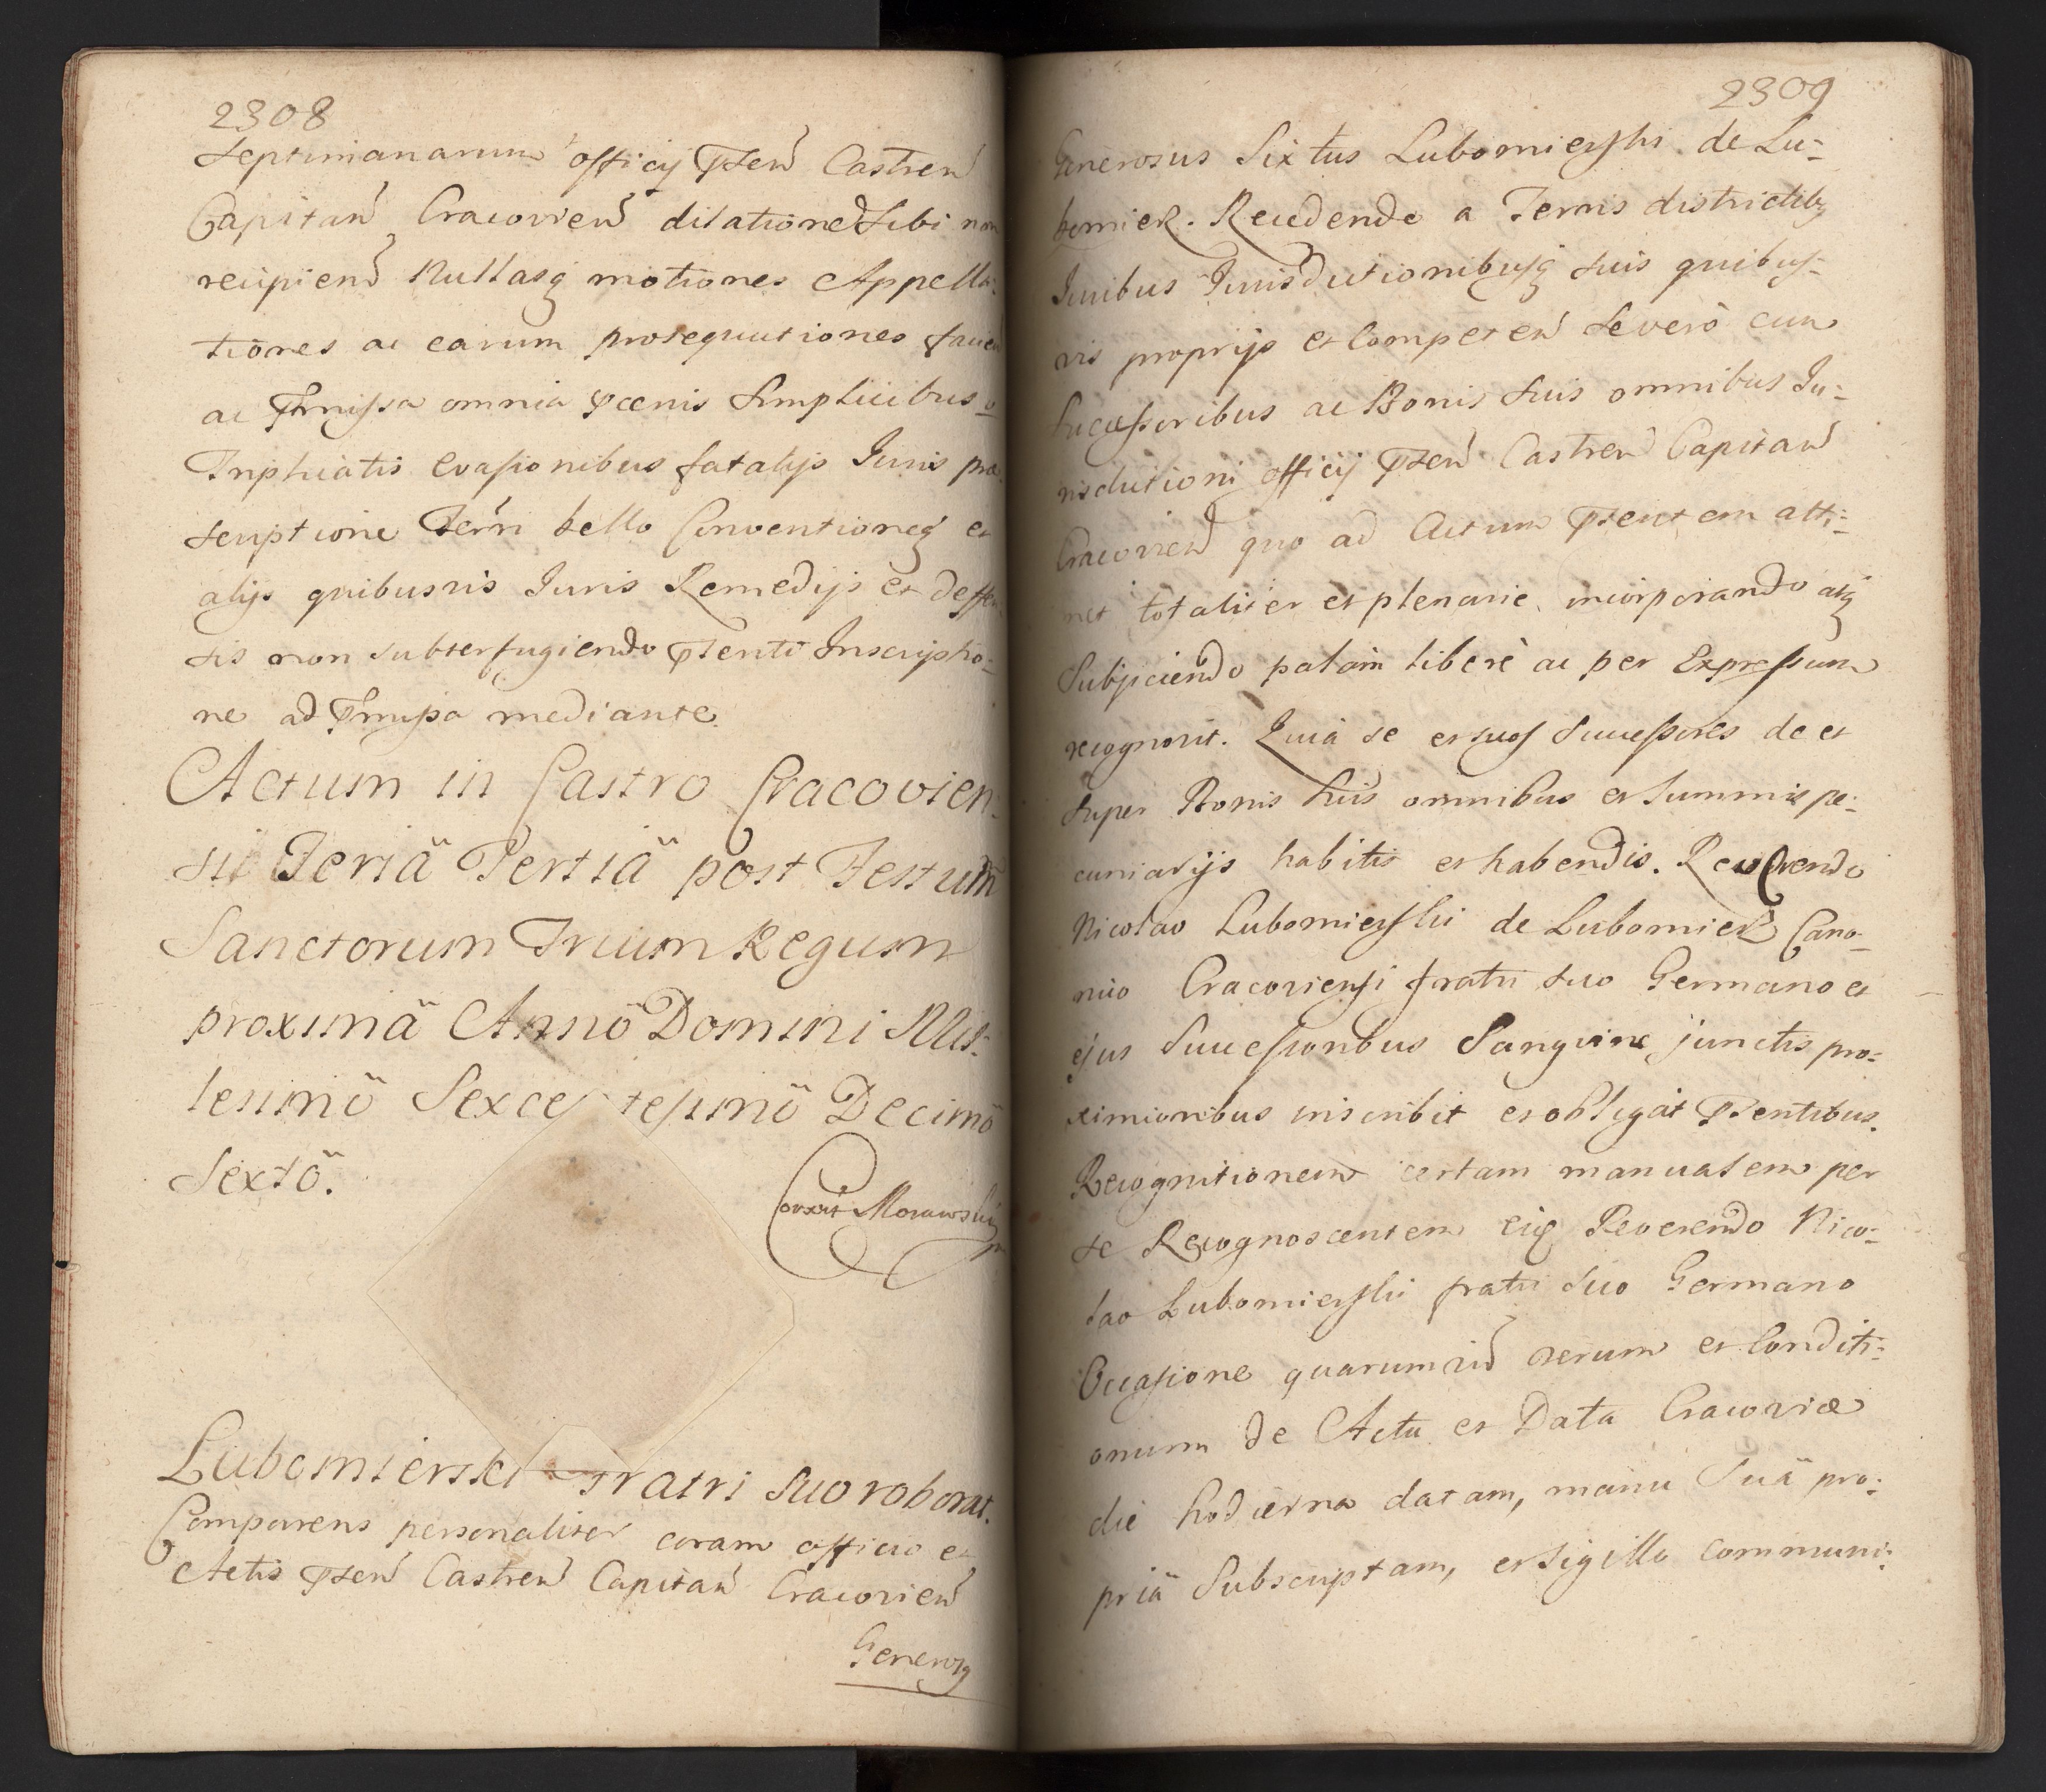 2308
Septimanarum officij Pñtem Castren
Capitan Cracovien dilatione Sibi non
recipien Nullasq motiones Appella:
tiones ac earum prosequutiones facien
ac Pr̃missa omnia poenis Simplicibus
Triplicatis evasionibus fatalijs Juris præ
scriptione Terr̃ri bello Conventioneq et
alijs quibusvis Juris Remedijs et deffen
sis non subterfugiendo Pñti Inscriptio:
ne ad Pr̃missa mediante.
Actum in Castro Cracovien:
sii Feriâ Tertiâ post Festum
Sanctorum Trium Regum
proximâ Annô Domini Mil:
lesimô Sexcentesimô Decimô
Sextô.
Corexit Morawski
Lubomierski Fratri suo roborat.
Comparens personaliter coram officio et
Actis Pñten Castren Capitan Cracovien
Generosq
2309
Generosus Sixtus Lubomierski de Lu:
bomierz. Recedendo a Terris districtibq
Juribus Jurisdictionibusq suis quibus:
vis proprijs et Competen Severò cum
Successoribus ac Bonis suis omnibus Ju:
risdictioni officij Pñten Castren Capitan
Cracovien quo ad Actum Pñtentem atti:
net totaliter et plenarie incorporando atq
Subjiciendo palàm liberè ac per Expressum
recognovit. Quia se et suos Successores de et
super Bonis suis omnibus et Summis pe:
cuniarijs habitis et habendis. Reverendo
Nicolao Lubomierski de Lubomierz Cano-
nico Cracoviensi fratri suo Germano et
ejus Successoribus Sanguine junctis pro:
ximioribus inscribit et obligat Pñtentibus.
Recognitionem certam manualem per
se Recognoscentem eiq Reverendo Nico:
lao Lubomierski fratri suo Germano
Occasione quarumvis rerum et Conditi:
onum de Actu et Data Cracoviæ
die hodierna datam, manu Suâ pro:
priâ Subscriptam, et sigillo communi: